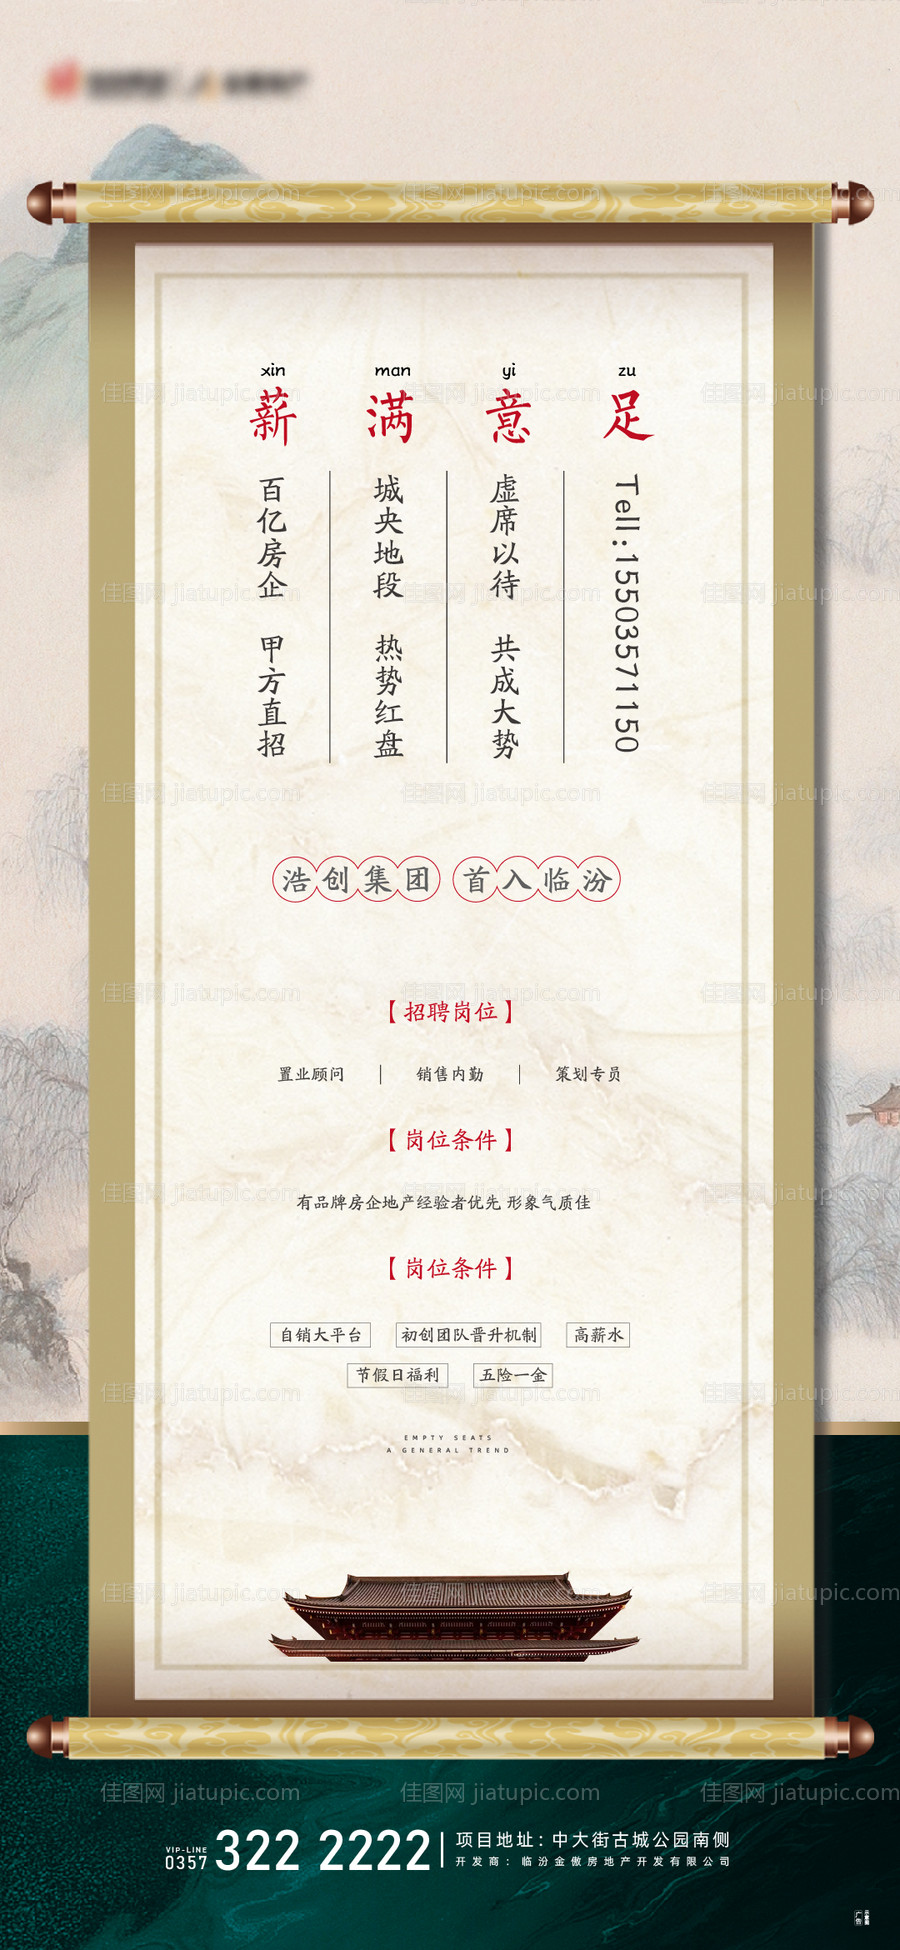 xin man yi zu
薪 满 意 足
百亿房企 甲方直招
城央地段 热势红盘
虚席以待 共成大势
Tell:15503571150
浩创集团 首入临汾
【招聘岗位】
置业顾问 | 销售内勤 | 策划专员
【岗位条件】
有品牌房企地产经验者优先 形象气质佳
【岗位条件】
自销大平台 初创团队晋升机制 高薪水
节假日福利 五险一金
EMPTY SEATS
A GENERAL TREND
VIP-LINE
0357 322 2222
项目地址:中大街古城公园南侧
开发商:临汾金傲房地产开发有限公司
佳图网 jiatupic.com